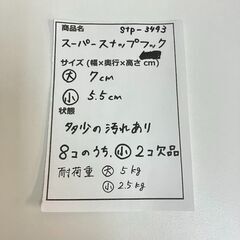 商品名 stp-3493
スーパースナップフック
サイズ (幅×奥行×高さ cm)
大 7cm
小 5.5cm
状態
多少の汚れあり
8コのうち、小2コ欠品
耐荷重 大 5kg
小 2.5kg